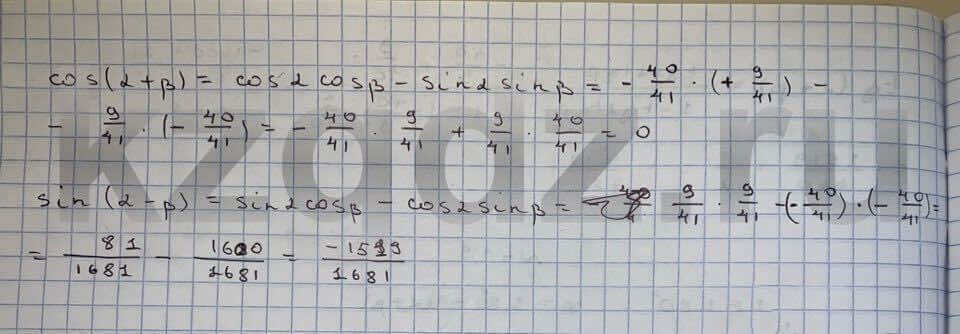 cos(α+β) = cosα cosβ - sinα sinβ = - 40/41 · (+ 9/41) -
- 9/41 · (- 40/41) = - 40/41 · 9/41 + 9/41 · 40/41 = 0
sin(α-β) = sinα cosβ - cosα sinβ = 9/41 · 9/41 -(- 40/41) · (- 40/41) =
= 81/1681 - 1600/1681 = -1519/1681
kzgdz.ru